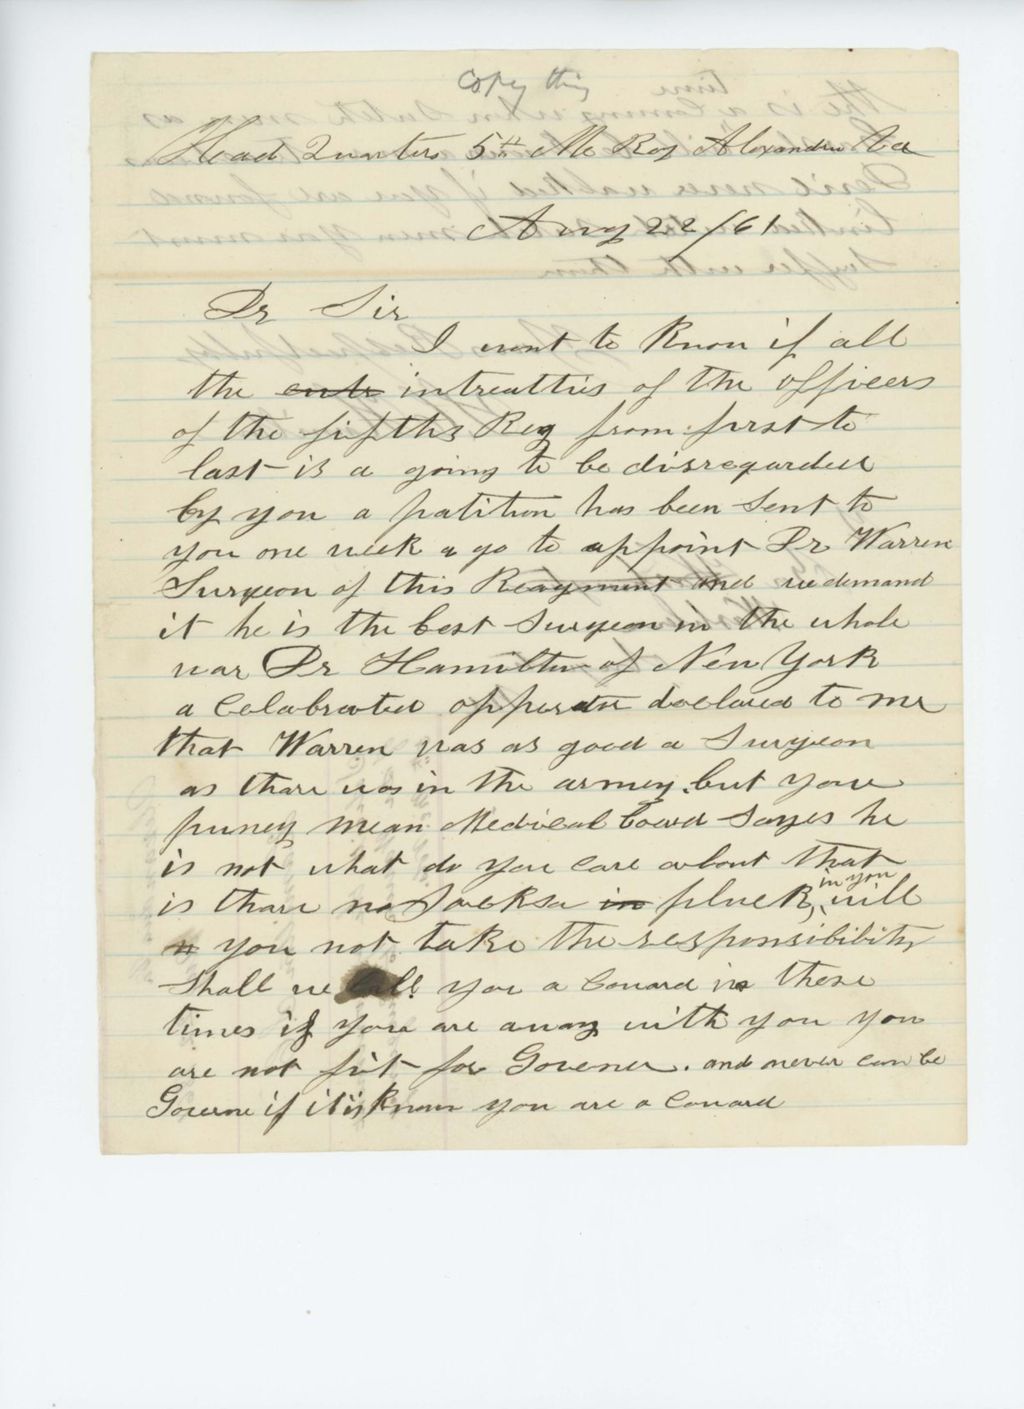 Copy this
Head Quarters 5th Me Reg Alexandra Va
Aug 22/61
Dr Sir
I want to Know if all
the intreatties of the officers
of the fifths Reg from first to
last is a going to be disregarded
by you a patition has been sent to
you one week a go to appoint Dr Warren
Surgeon of this Reagment and we demand
it he is the best Surgeon in the whole
war Dr Hamilton of New York
a Celabrated opperator declared to me
that Warren was as good a Surgeon
as thare was in the armey. but your
puney mean Medical Board Sayes he
is not what do you care about that
is thare no Jackson in pluck, in you will
you not take the responsibibity
Shall we call you a Couard in these
times if you are away with you you
are not fit for Govener. and never can be
Governe if it is Known you are a Couard